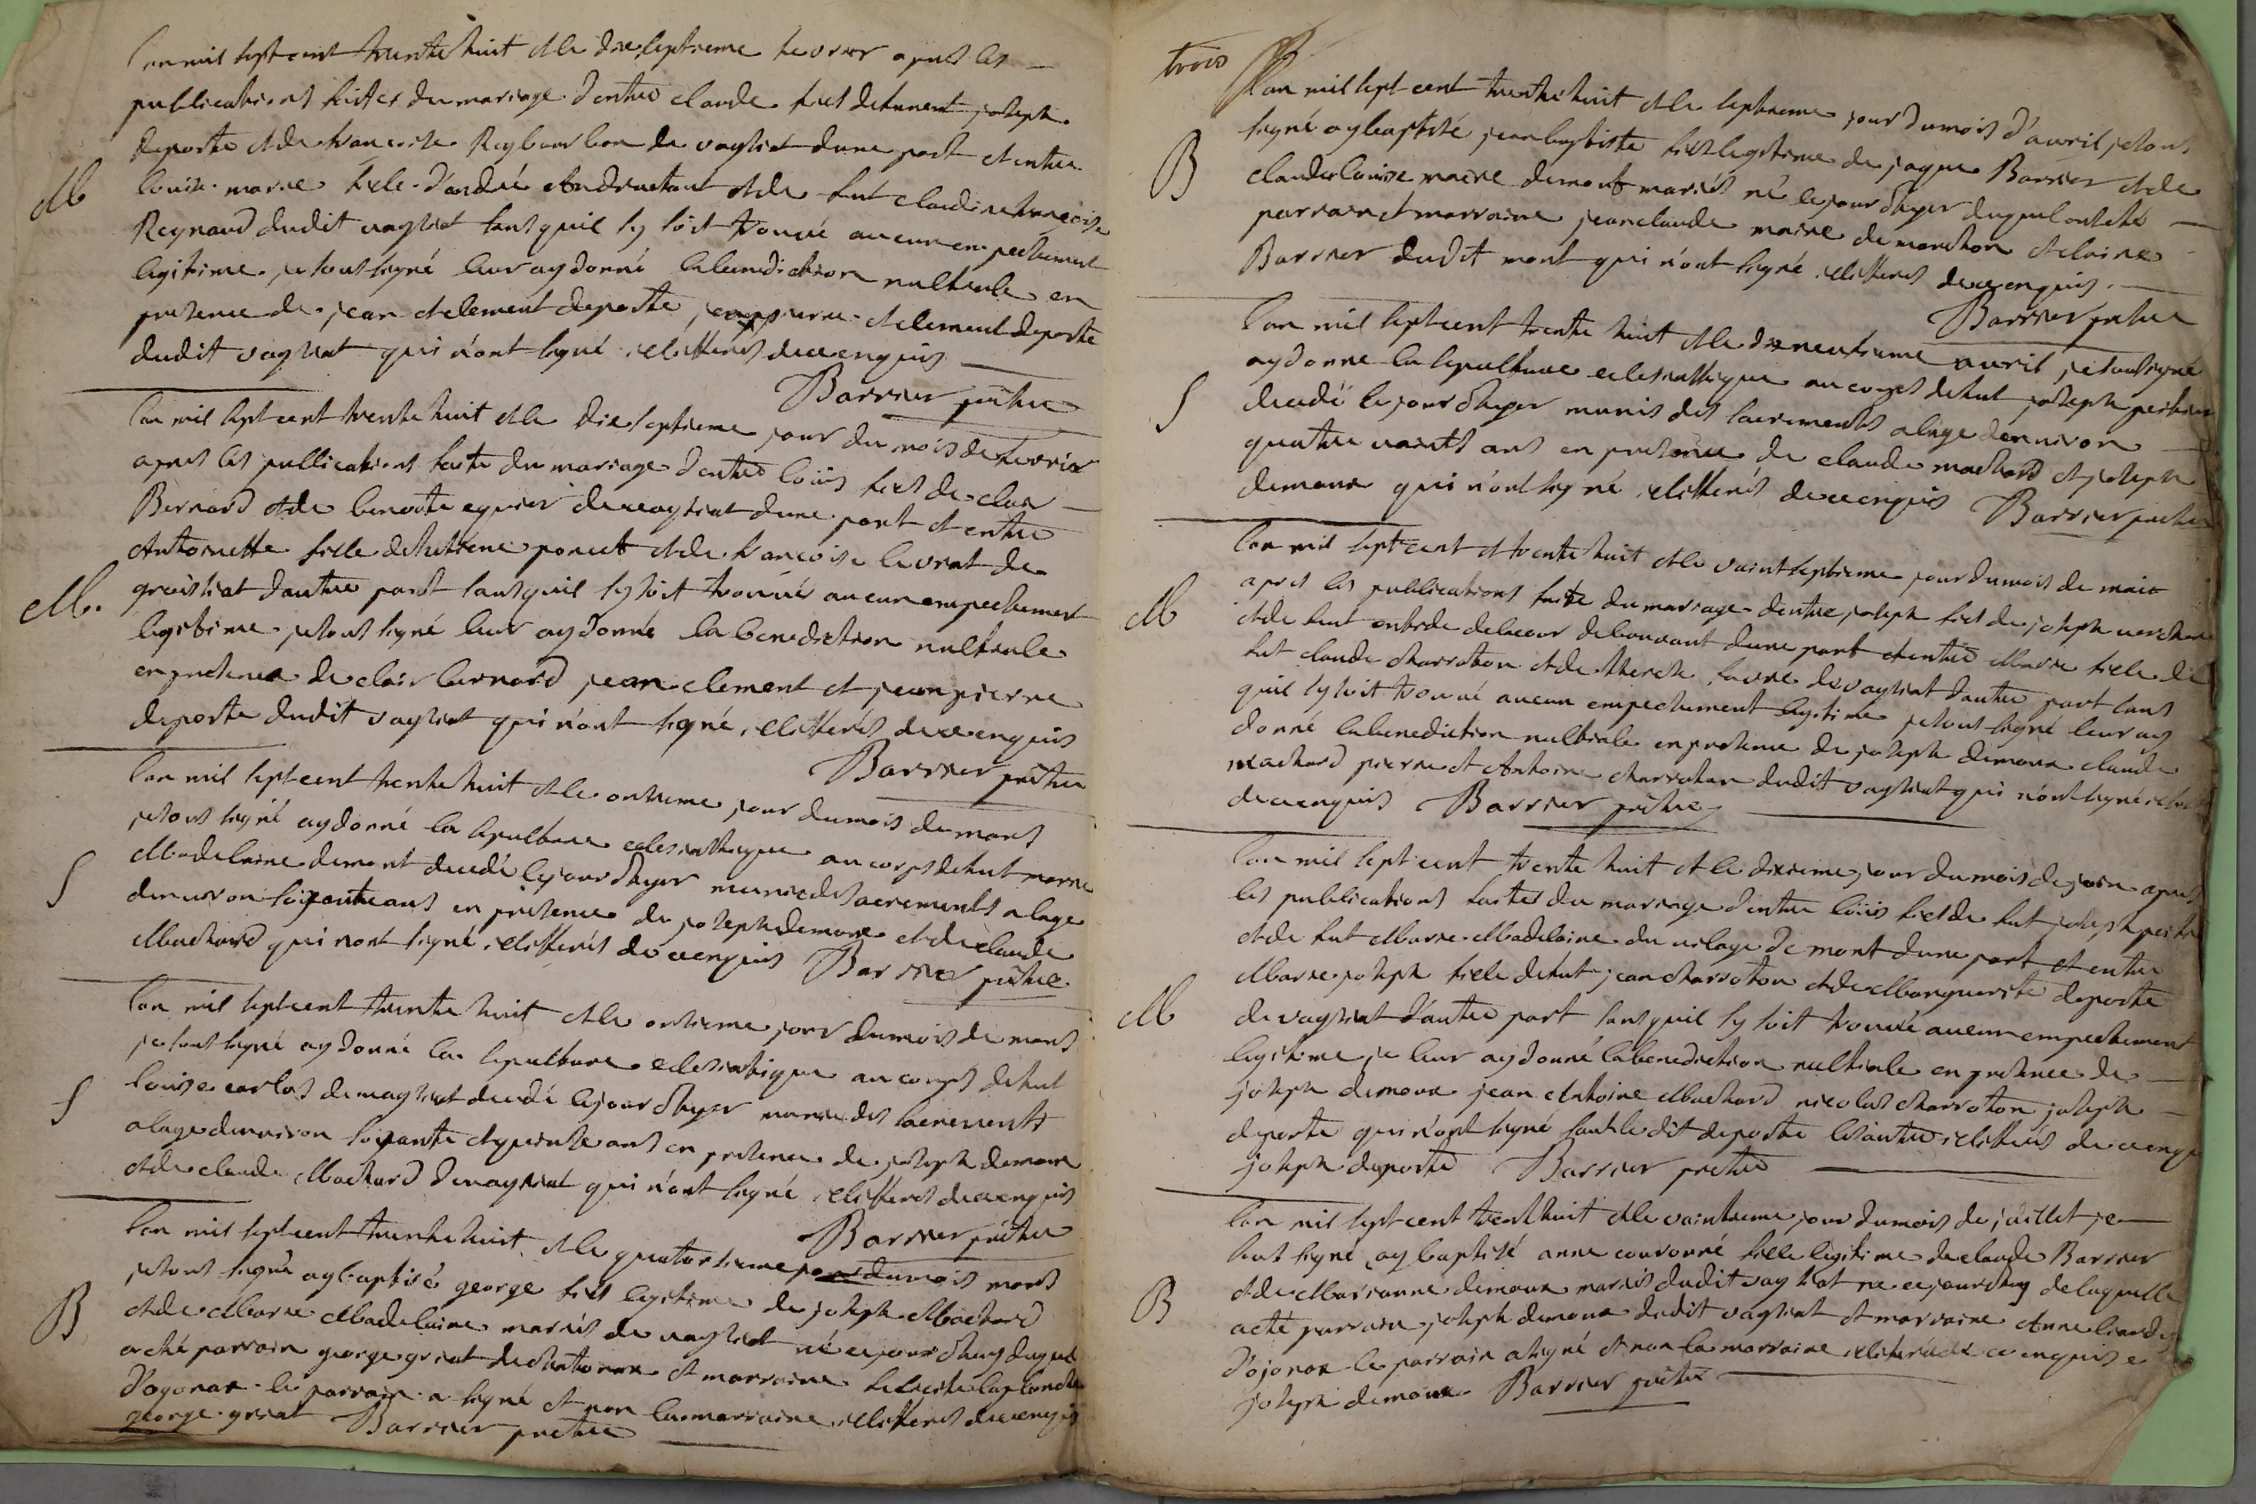 lan mil sept cent trente huit et le dixseptieme fevrier apres les
publications faittes du mariage d'entre claude fils defunent joseph
deporte et de francoise Reybourbon de vaghiat dune part et entre
M
louise marie fille d'andré Andruetant et de fut claudine françoise
Reynaud dudit vaghiat sans quil sy soit trouvé aucun empechement
legitime je sous signé leur ay donné la benediction nultiale en
presence de jean clement deporte jeanpierre clement deporte
dudit vaghiat qui n'ont signé illitterés de ce enquis
Barrier prêtre
lan mil sept cent trente huit et le dixseptieme jour du mois de fevrier
apres les publications faitte du mariage d'entre loüis fils de clair
Bernard et de benoite eguier de vaghiat dune part et entre
Antoinette fille d'estiene poncet et de francoise levrat de
M.
greissiat dautre part sans quil sy soit trouvés aucun empechement
legitime je sous signé leur ay donné la benediction nultiale
en presence de clair bernard jean clement et jeanpierre
deporte dudit vaghiat qui n'ont signé illitterés de ce enquis
Barrier prêtre
lan mil sept cent trente huit et le onzieme jour du mois de mars
je sous signé ay donné la sepulture eclesiastique au corps de fut marie
Madelaine demont decedé le jour d'hyer munie des sacrements a lage
S
denviron soixante ans en presence de joseph demoux et de claude
Machard qui nont signé illitterés de ce enquis Barrier prêtre
lan mil sept cent trente huit et le onzieme jour du mois de mars
je sous signé ay donné la sepulture eclesiastique au corps de fut
S
louise carlos de vaghiat decedé le jour d'hyer munie des sacrements
a lage denviron soixante et quinze ans en presence de joseph demoux
et de claude Machard de vaghiat qui n'ont signé illitterés de ce enquis
Barrier prêtre
lan mil sept cent trente huit et le quatorzieme jour du mois mars
je sous signé ay baptisé george fils legitime de joseph Machard
B
et de Marie Madelaine mariés de vaghiat né ce jourdhuy duquel
a eté parrain george griat de et marraine laplanche
d'ogonax le parrain a signé et non la marraine illitterés de ce enquis
george griat Barrier prêtre
trois
lan mil sept cent trente huit et le septieme jour du mois d'avril je sous
signé ay baptisé jean baptiste fils legitime de jaque Barrier et de
B
claudelouise maire de mont mariés né le jour d'hyer duquel ont eté
parrain et marraine jean claude maire de monthon et claire
Barrier dudit mont qui n'ont signé illitterés de ce enquis.
Barrier prêtre
lan mil sept cent trente huit et le dixneufvieme avril je sous signé
ay donne la sepulture eclesiastique au corps de fut joseph
S
decedé le jour d'hyer munis des sacrements a lage denviron
quatre vaints ans en presence de claude machard et joseph
demoux qui n'ont signé illitterés de ce enquis Barrier prêtre
lan mil sept cent et trente huit et le vaintseptieme jour du mois de mais
apres les publications faite du mariage dentre joseph fils de joseph
M
et de fut delacour de dune part et entre Marie fille de
fut claude charroton et de therese favre de vaghiat dautre part sans
quil sy soit trouvé aucun empechement legitime je sous signé leur ay
donné la benediction nultiale en presence de joseph demoux claude
machard pierre et Antoine charroton dudit vaghiat qui n'ont signé
de ce enquis Barrier prêtre
lan mil sept cent trente huit et le dixieme jour du mois de juin apres
les publications faites du mariage d'entre loüis fils de fut joseph
et de fut Marie Madelaine du vilage de mont dune part et entre
Marie joseph fille de fut jean charroton et de Marguerite deporte
M
de vaghiat d'autre part sans quil sy soit trouvé aucun empechement
legitime je leur ay donné la benediction nultiale en presence de
joseph demoux jean Antoine Machard nicolas charroton joseph
deporte qui n'ont signé sauf le dit deporte les autres illitterés de ce enquis
joseph deporte Barrier prêtre
lan mil sept cent trent huit et le vaintieme jour du mois de juillet je
sous signé ay baptisé anne couronné fille legitime de claude Barrier
et de Marianne demoux mariés dudit vaghiat ne ce jourdhuy de laquelle
B
a eté parrain joseph demoux dudit vaghiat et marraine Anne
d'ojonax le parrain a signé et non la marraine illiterée de ce enquise
joseph demoux Barrier prêtre